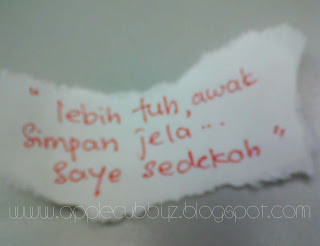 " lebih tuh, awak
simpan jela...
saye sedekah "
www.applecubbuz.blogspot.com